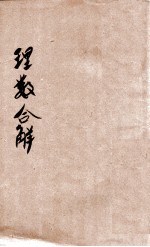 理數合解